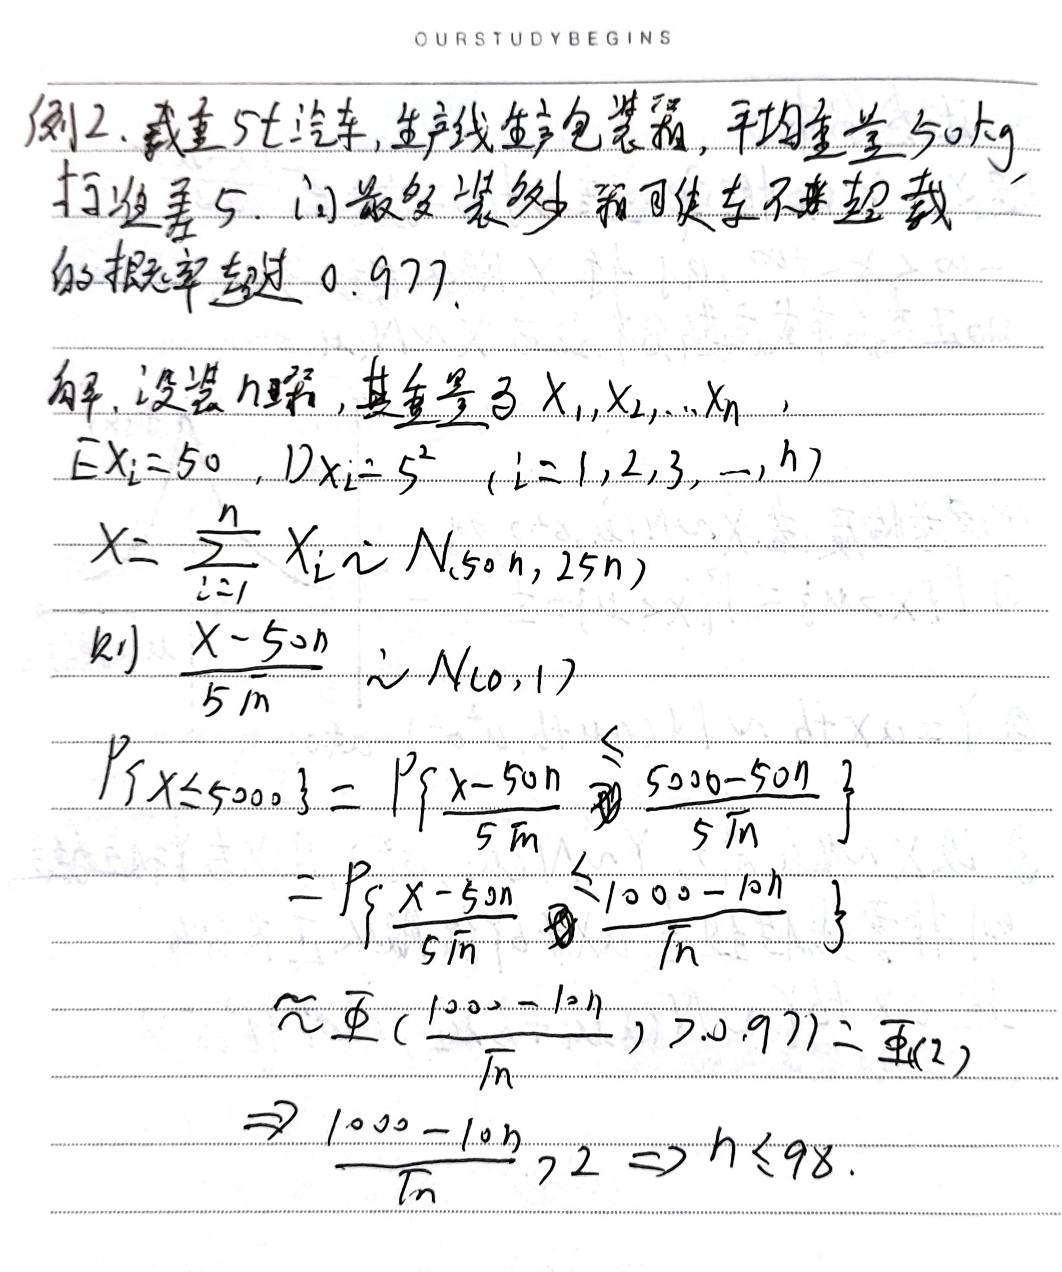 OURSTUDYBEGINS
例2. 载重5t汽车,生产线生产包装箱,平均重量50kg,
标准差5. 问最多装多少箱可使车不超载
的概率超过0.977.
解. 设装n箱,其重量为 X₁,X₂,…Xn,
EXi=50, DXi=5² (i=1,2,3,…,n)
X=∑ᵢ₌₁ⁿ Xi ~ N(50n, 25n)
则 (X-50n)/(5√n) ~ N(0,1)
P{X≤5000} = P{(X-50n)/(5√n) ≤ (5000-50n)/(5√n)}
= P{(X-50n)/(5√n) ≤ (1000-10n)/√n}
≈ Φ((1000-10n)/√n) > 0.977 = Φ(2)
⇒ (1000-10n)/√n > 2 ⇒ n≤98.